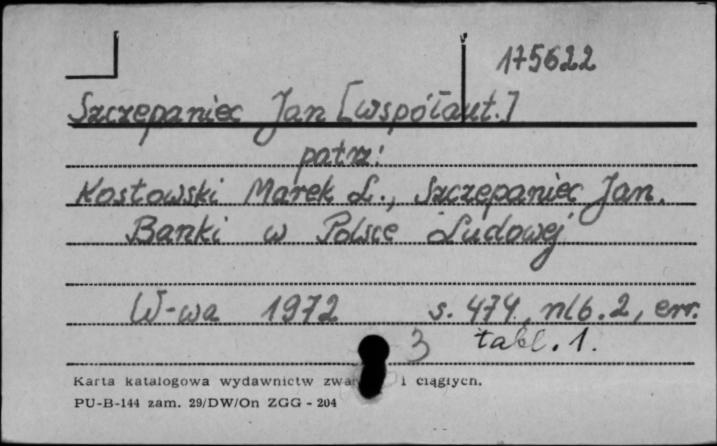 175622
Szczepaniec Jan [współaut.]
patrz:
Kostowski Marek L., Szczepaniec Jan.
Banki w Polsce Ludowej
W-wa 1972 s. 474, nlb. 2, err.
3 tabl. 1.
Karta katalogowa wydawnictw i ciągłych.
PU-B-144 zam. 29/DW/On ZGG - 204